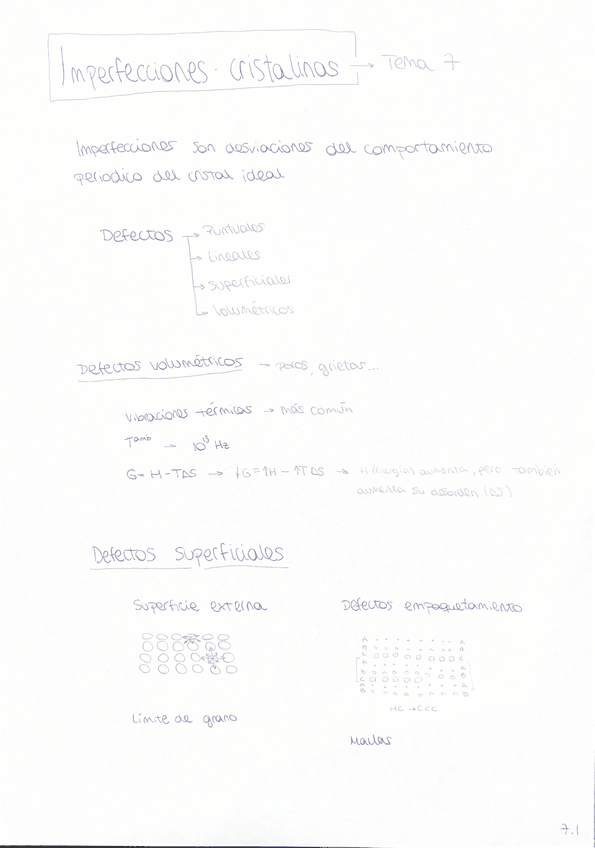 Imperfecciones cristalinas → Tema 7
Imperfecciones son desviaciones del comportamiento
periodico del cristal ideal
Defectos → Puntuales
→ Lineales
→ Superficiales
→ Volumétricos
Defectos volumétricos → Poros, grietas...
Vibraciones térmicas → más común
Tamb → 10¹³ Hz
G = H - TΔS → ↓G = ↑H - ↑TΔS → H (energía) aumenta, pero también
aumenta su desorden (ΔS)
Defectos superficiales
Superficie externa
Defectos empaquetamiento
HC → CCC
Límite de grano
Maclas
7.1